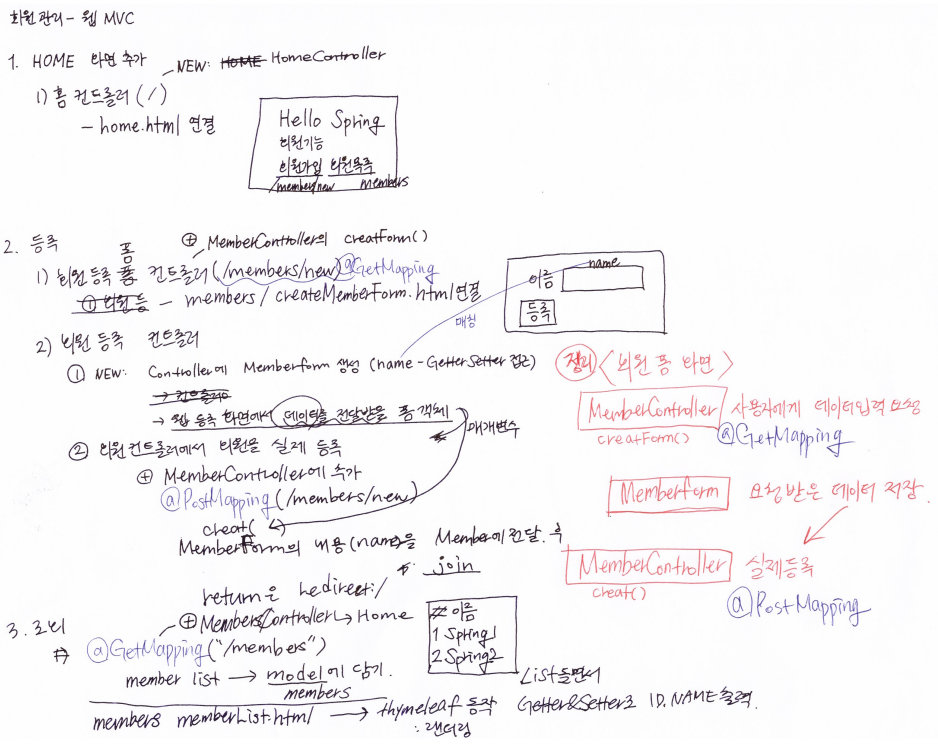 회원 관리 - 웹 MVC
1. HOME 화면 추가
NEW: HOME HomeController
1) 홈 컨트롤러 (/)
- home.html 연결
Hello Spring
회원기능
회원가입 회원목록
/members/new members
2. 등록
⊕ MemberController의 creatForm()
1) 회원 등록 폼 컨트롤러 (/members/new) @GetMapping
① 회원 등 - members / createMemberForm.html 연결
name
이름
등록
매칭
2) 회원 등록 컨트롤러
① NEW: Controller에 Memberform 생성 (name - Getter Setter 접근)
→ 컨트롤러
→ 웹 등록 화면에서 데이터를 전달받을 폼 객체
매개변수
② 회원 컨트롤러에서 회원을 실제 등록
⊕ MemberController에 추가
@PostMapping (/members/new)
creat( )
MemberForm의 내용 (name)을 Member에 전달. 후
join
return은 redirect:/
↳ Home
정리 < 회원 폼 화면 >
MemberController 사용자에게 데이터입력 요청
creatForm() @GetMapping
Memberform 요청받은 데이터 저장.
MemberController 실제등록
creat() @PostMapping
3. 조회
⊕ MembersController
@GetMapping("/members")
member list → model에 담기.
members
# 이름
1 Spring1
2 Spring2
List 돌면서
members memberList.html → thymeleaf 동작 Getter&Setter로 ID, NAME 출력.
: 랜더링